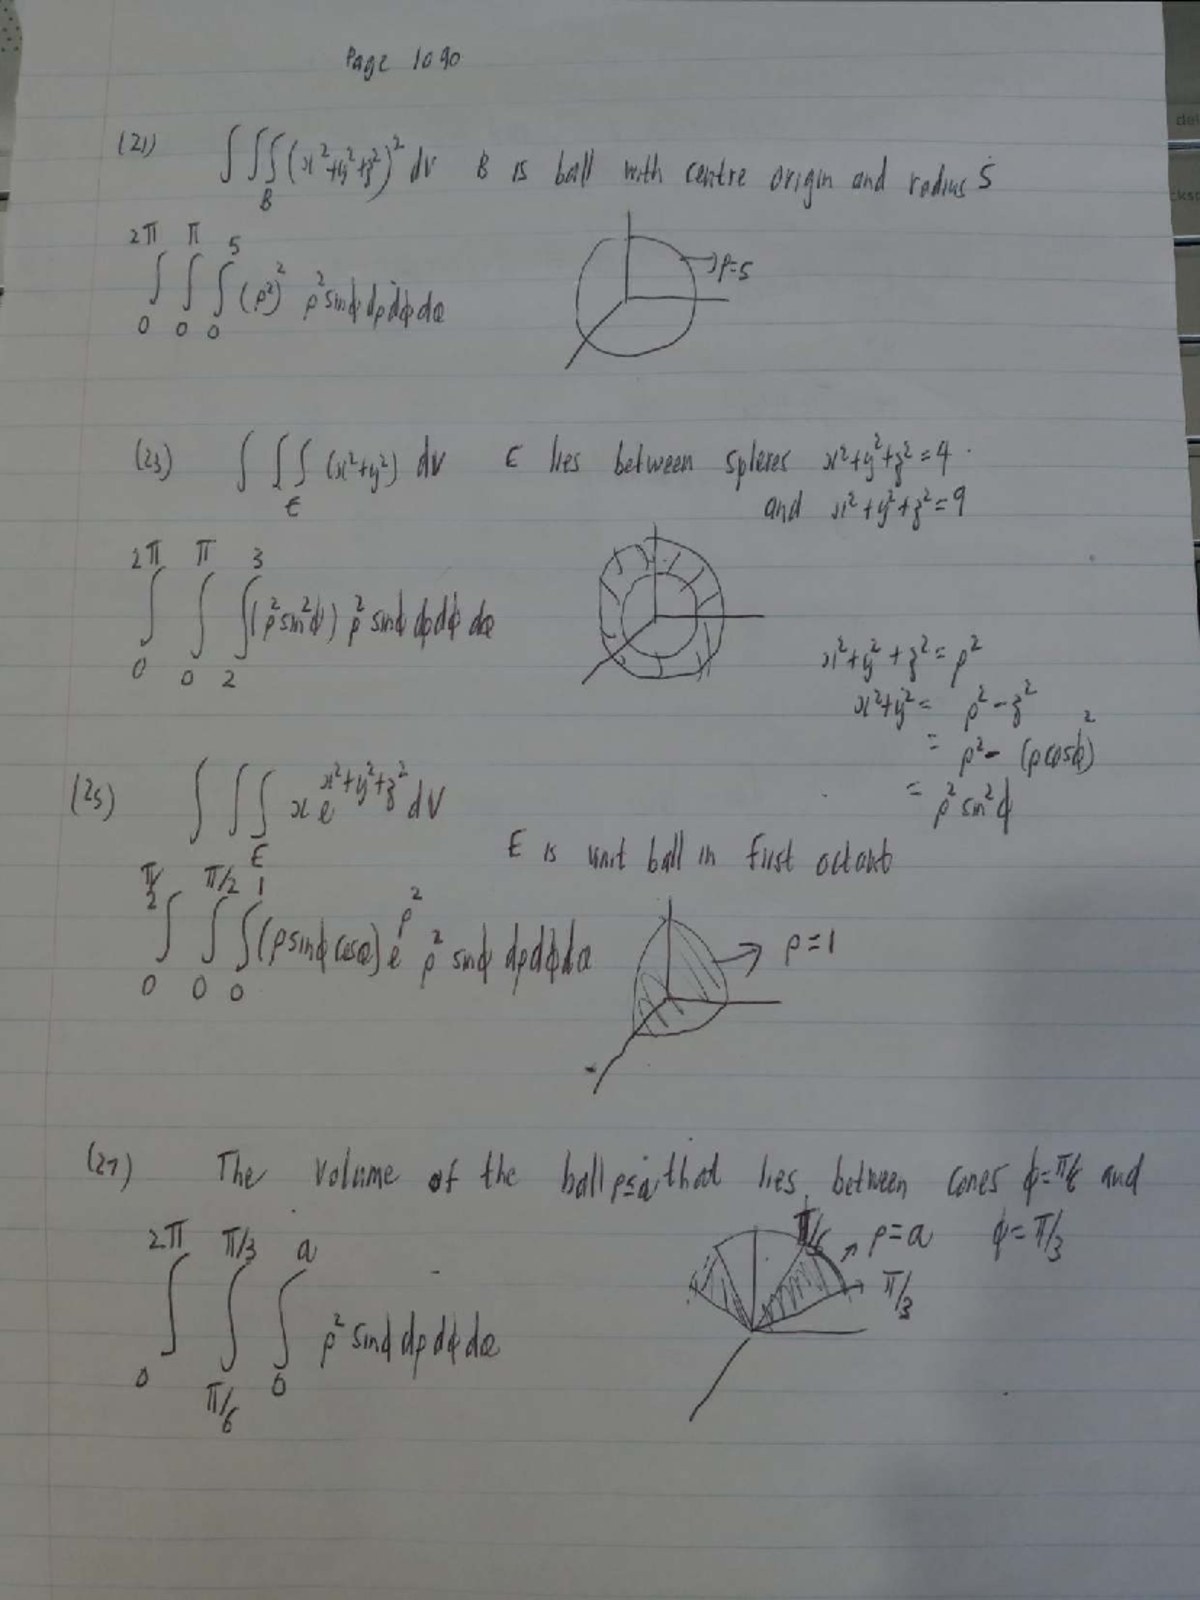 Page 1090
(21) ∫∫∫_B (x²+y²+z²)² dv B is ball with centre origin and radius 5
∫_0^{2π} ∫_0^π ∫_0^5 (ρ²)² ρ² sinϕ dρ dϕ dθ
→ρ=5
(23) ∫∫∫_E (x²+y²) dv E lies between spheres x²+y²+z²=4.
and x²+y²+z²=9
∫_0^{2π} ∫_0^π ∫_2^3 (ρ² sin²ϕ) ρ² sinϕ dρ dϕ dθ
x²+y²+z² = ρ²
x²+y² = ρ² - z²
= ρ² - (ρ cosϕ)²
= ρ² sin²ϕ
(25) ∫∫∫_E x e^{x²+y²+z²} dV
E is unit ball in first octant
∫_0^{π/2} ∫_0^{π/2} ∫_0^1 (ρ sinϕ cosθ) e^{ρ²} ρ² sinϕ dρ dϕ dθ
→ ρ=1
(27) The volume of the ball ρ≤a that lies between cones ϕ=π/6 and
ϕ=π/3
π/6
→ ρ=a
π/3
∫_0^{2π} ∫_{π/6}^{π/3} ∫_0^a ρ² sinϕ dρ dϕ dθ